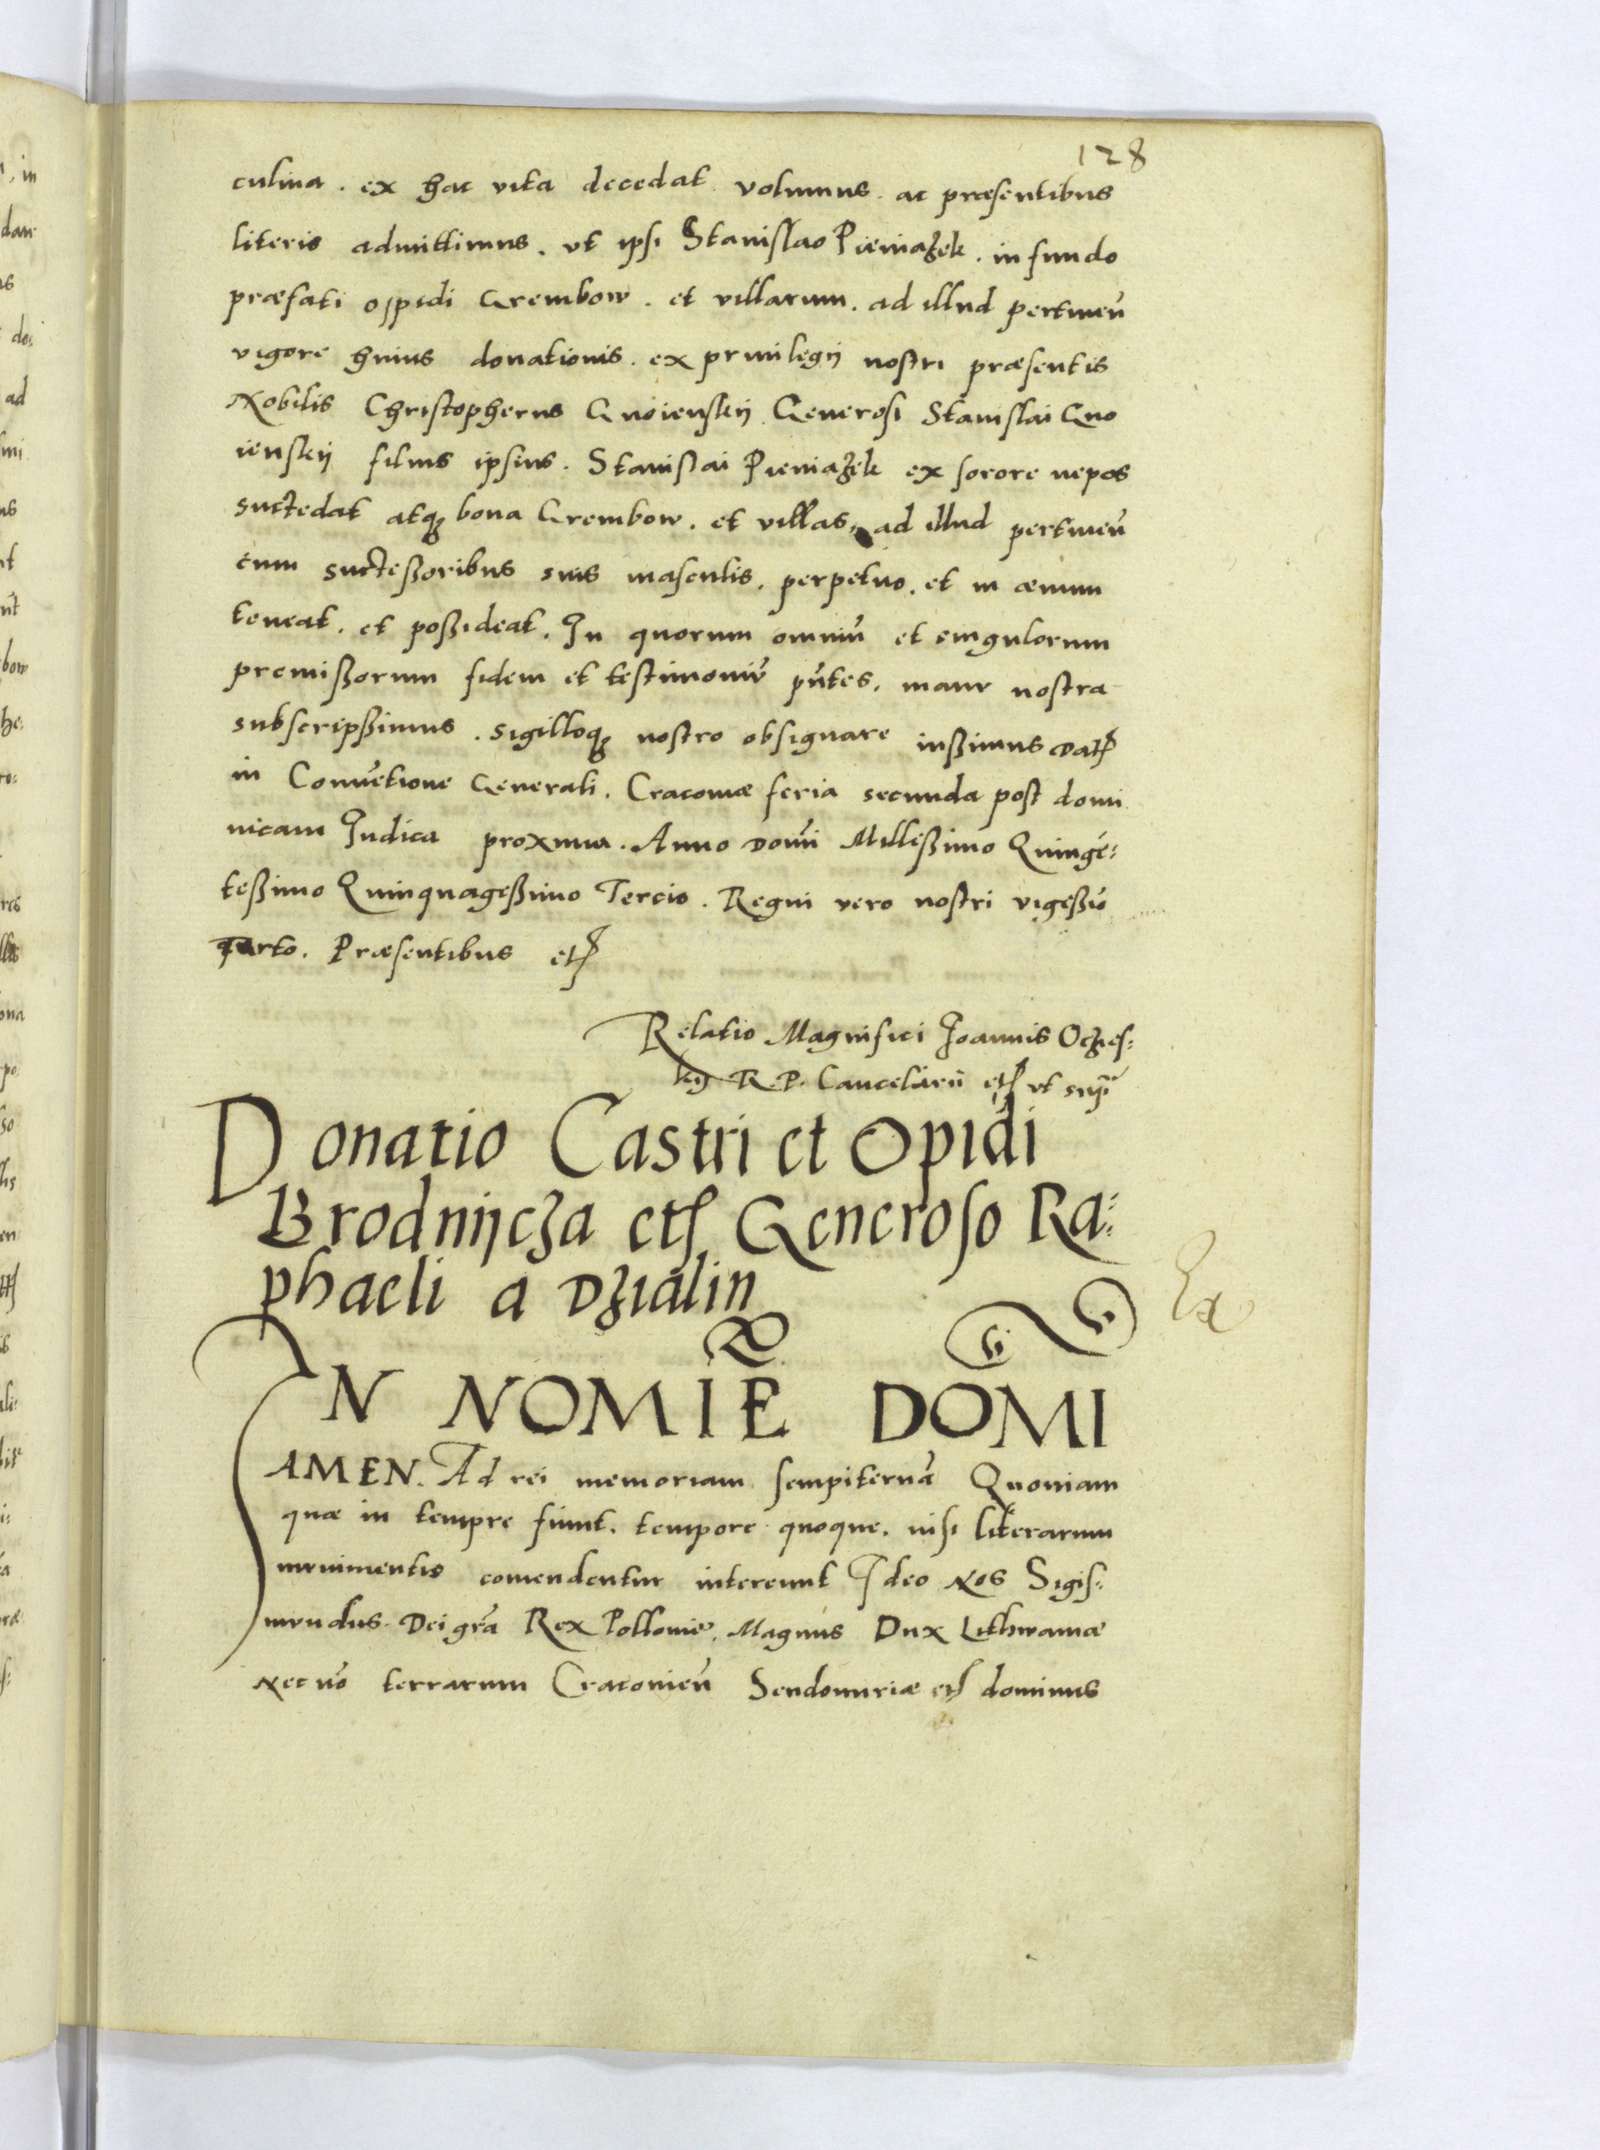 128
culina. ex hac vita decedat volumus. ac præsentibus
literis admittimus. ut ipsi Stanislao Pieniażek. in fundo
præfati oppidi Grembow. et villarum. ad illud pertineñ
vigore huius donationis. ex privilegij nostri præsentis
Nobilis Christopherus Gnoienskij Generosi Stanislai Gno
ienskij filius ipsius. Stanislai Pieniażek ex sorore nepos
succedat atq₃ bona Grembow. et villas, ad illud pertineñ
cum successoribus suis masculis. perpetuo. et in ævum
teneat. et possideat. In quorum omniū et singulorum
premissorum fidem et testimoniū pn̄tes. manu nostra
subscripssimus. sigilloq₃ nostro obsignare iussimus Datꝭ
in Convētione Generali. Cracoviæ feria secunda post domi
nicam Iudica proxima. Anno Domī Millessimo Quingē-
tessimo Quinquagessimo Tercio. Regni vero nostri vigessīo
qarto. Præsentibus etꝭ
Relatio Magnifici Joannis Oczies-
kij R. P. Cancelarii etꝭ ut supꝭ
Donatio Castri et Opidi
Brodnijcza etꝭ Generoso Ra-
phaeli a Dzialin
IN NOMIĒ DOMI
AMEN. Ad rei memoriam sempiternā Quoniam
quæ in tempre fiunt. tempore quoque. nisi literarum
munimentis comendentur intereunt Ideo Nos Sigis-
mundus Dei grā Rex Polloniæ. Magnus Dux Lithwaniæ
Nec nō terrarum Cracovieñ Sendomiriæ etꝭ dominus